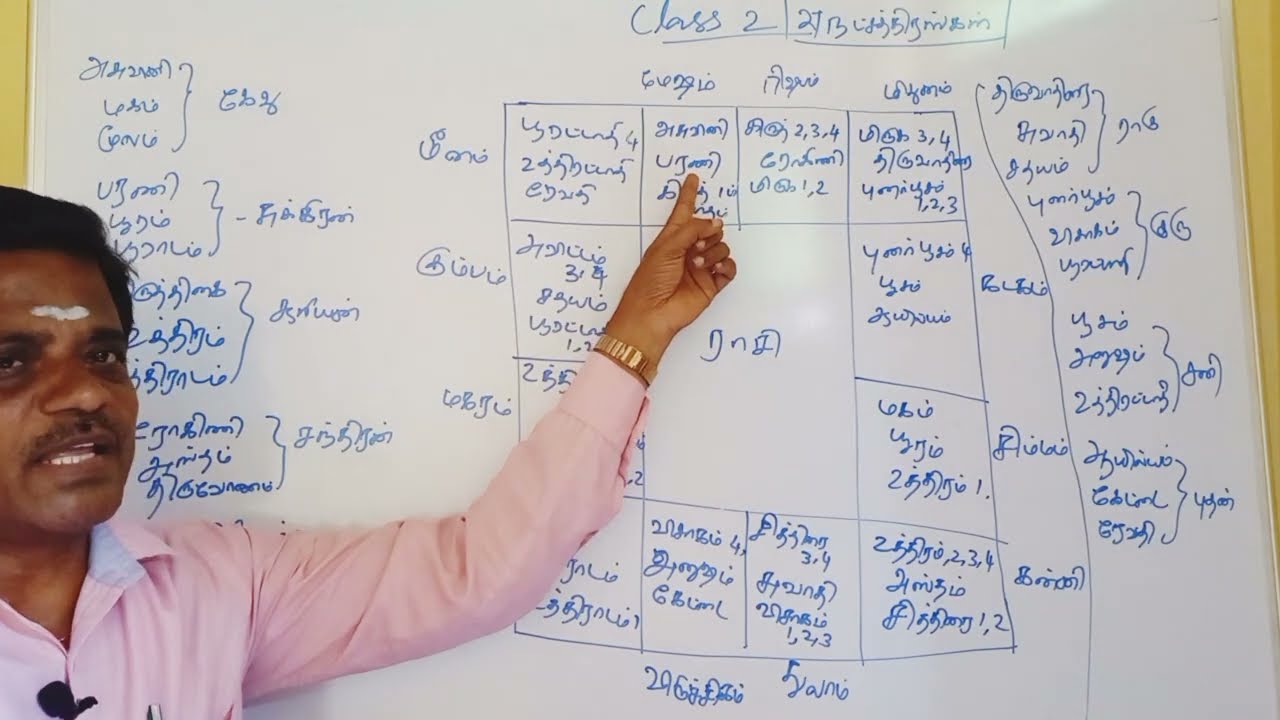 Class 2 27 நட்சத்திரங்கள்
அசுவனி
மகம்
மூலம்
கேது
பரணி
பூரம்
பூராடம்
- சுக்கிரன்
உத்திரம்
சூரியன்
ரோகிணி
அஸ்தம்
திருவோணம்
சந்திரன்
மேஷம்
ரிஷபம்
மிதுனம்
மீனம்
பூரட்டாதி 4
உத்திரட்டாதி
ரேவதி
அசுவனி
பரணி
மிருக 1,2
மிருக 3,4
திருவாதிரை
புனர்பூசம்
1,2,3
கும்பம்
அவிட்டம்
3,4
சதயம்
புனர்பூசம் 4
பூசம்
ஆயில்யம்
கடகம்
ராசி
மகரம்
மகம்
பூரம்
உத்திரம் 1.
சிம்மம்
விசாகம் 4,
அனுஷம்
கேட்டை
சித்திரை
3,4
சுவாதி
விசாகம்
1,2,3
உத்திரம், 2,3,4
அஸ்தம்
சித்திரை 1,2
கன்னி
விருச்சிகம்
துலாம்
திருவாதிரை
சுவாதி
சதயம்
ராகு
புனர்பூசம்
விசாகம்
குரு
பூசம்
அனுஷம்
உத்திரட்டாதி
சனி
ஆயில்யம்
கேட்டை
ரேவதி
புதன்